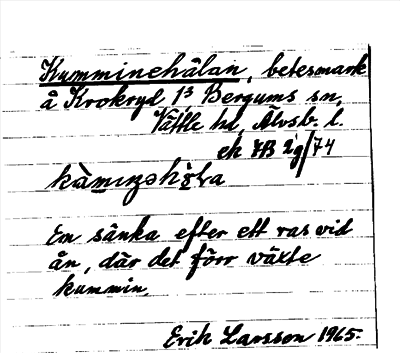 Kumminehålan, betesmark
å Krokryd 1³ Bergums sn,
Vättle hd, Älvsb. l.
ek 7B 2g/74

En sänka efter ett ras vid
ån, där det förr växte
kummin.
Erik Larsson 1965.